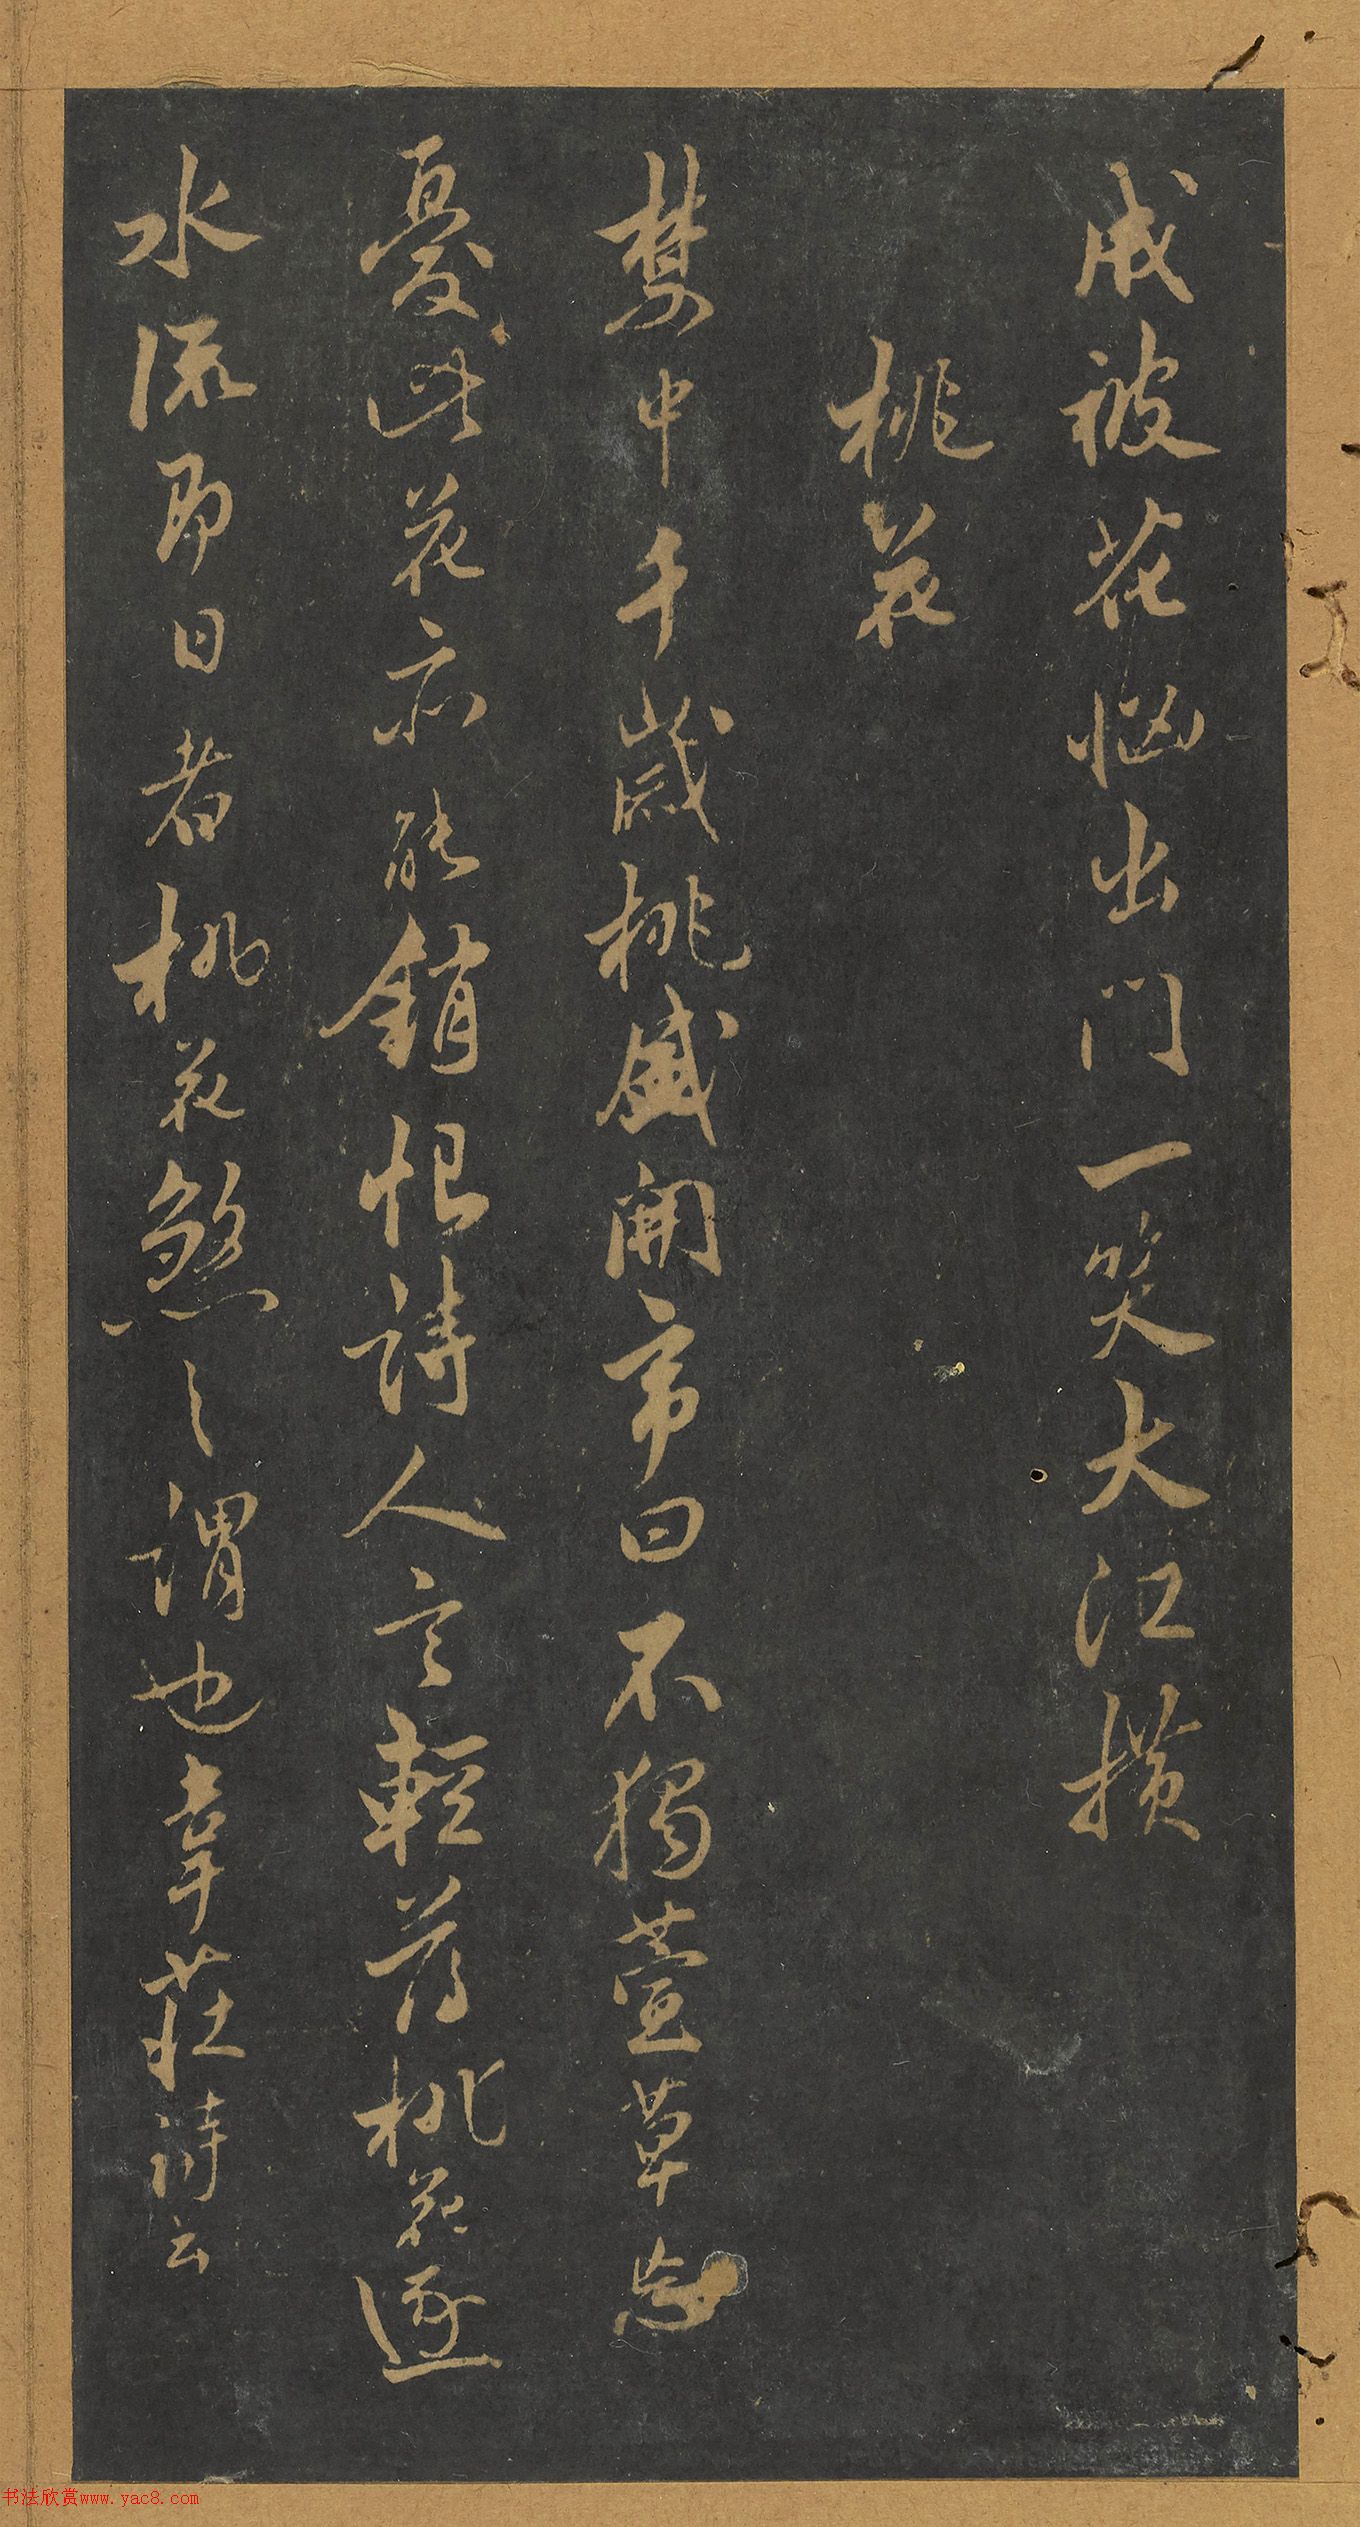 成被花惱出門一笑大江橫
桃花
禁中千歲桃盛開帝曰不獨萱草忘
憂此花亦能銷恨詩人言輕薄桃花逐
水流即日者桃花煞之謂也韋莊詩云
书法欣赏www.yac8.com